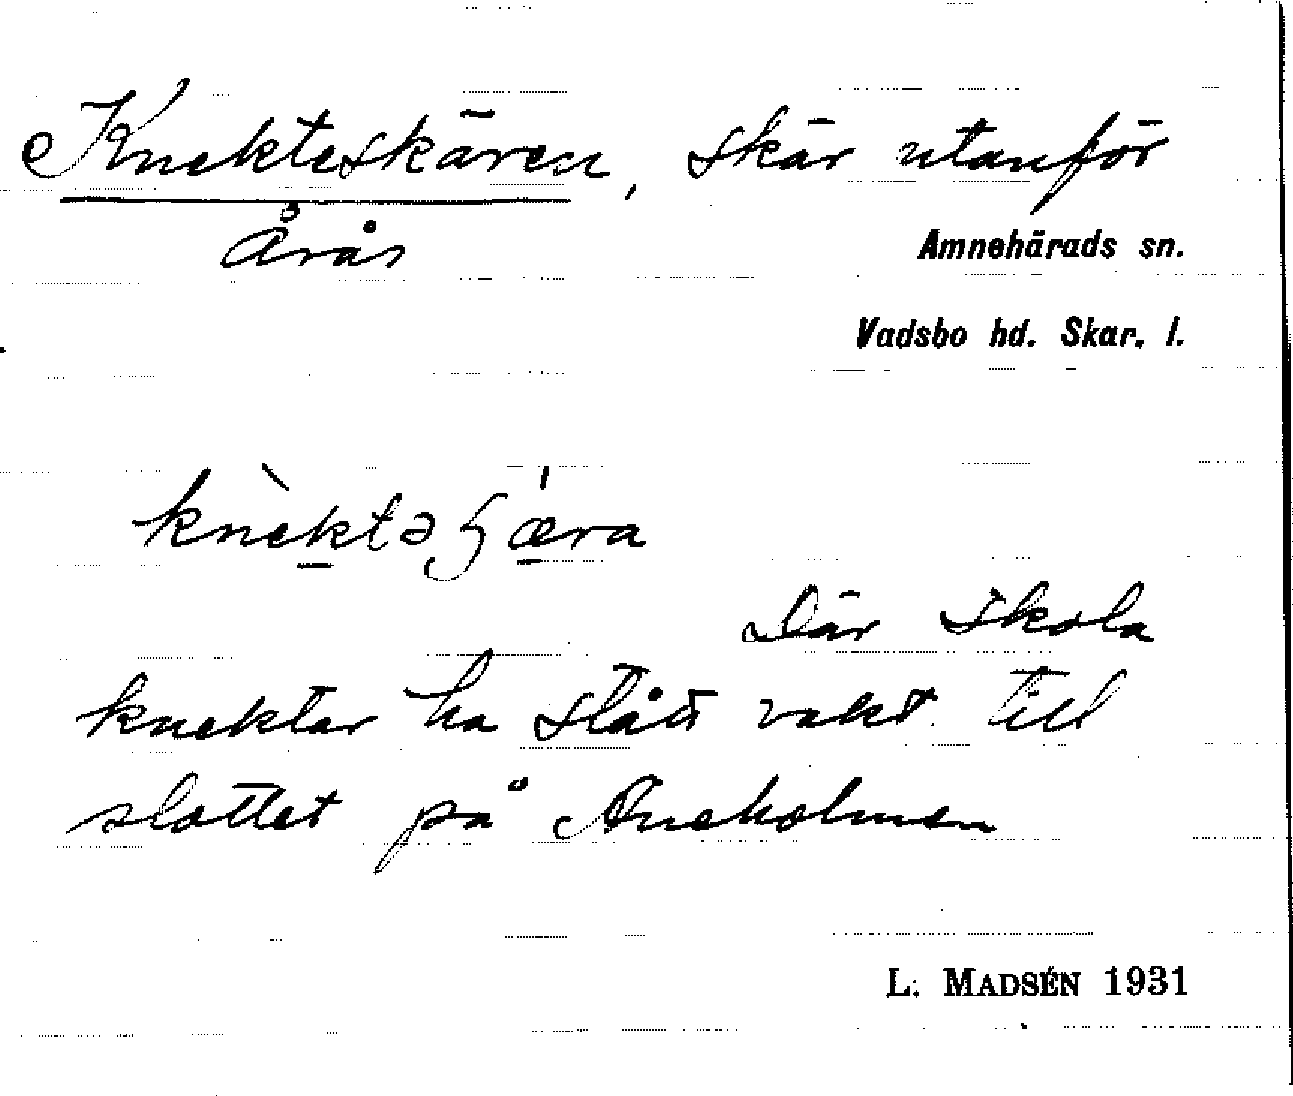 Knekteskären, skär utanför
Årås
Amnehärads sn.
Vadsbo hd. Skar. l.
knèktəʃæra
Där skola
knektar ha stått vakt till
slottet på Aneholmen
L. MADSÉN 1931